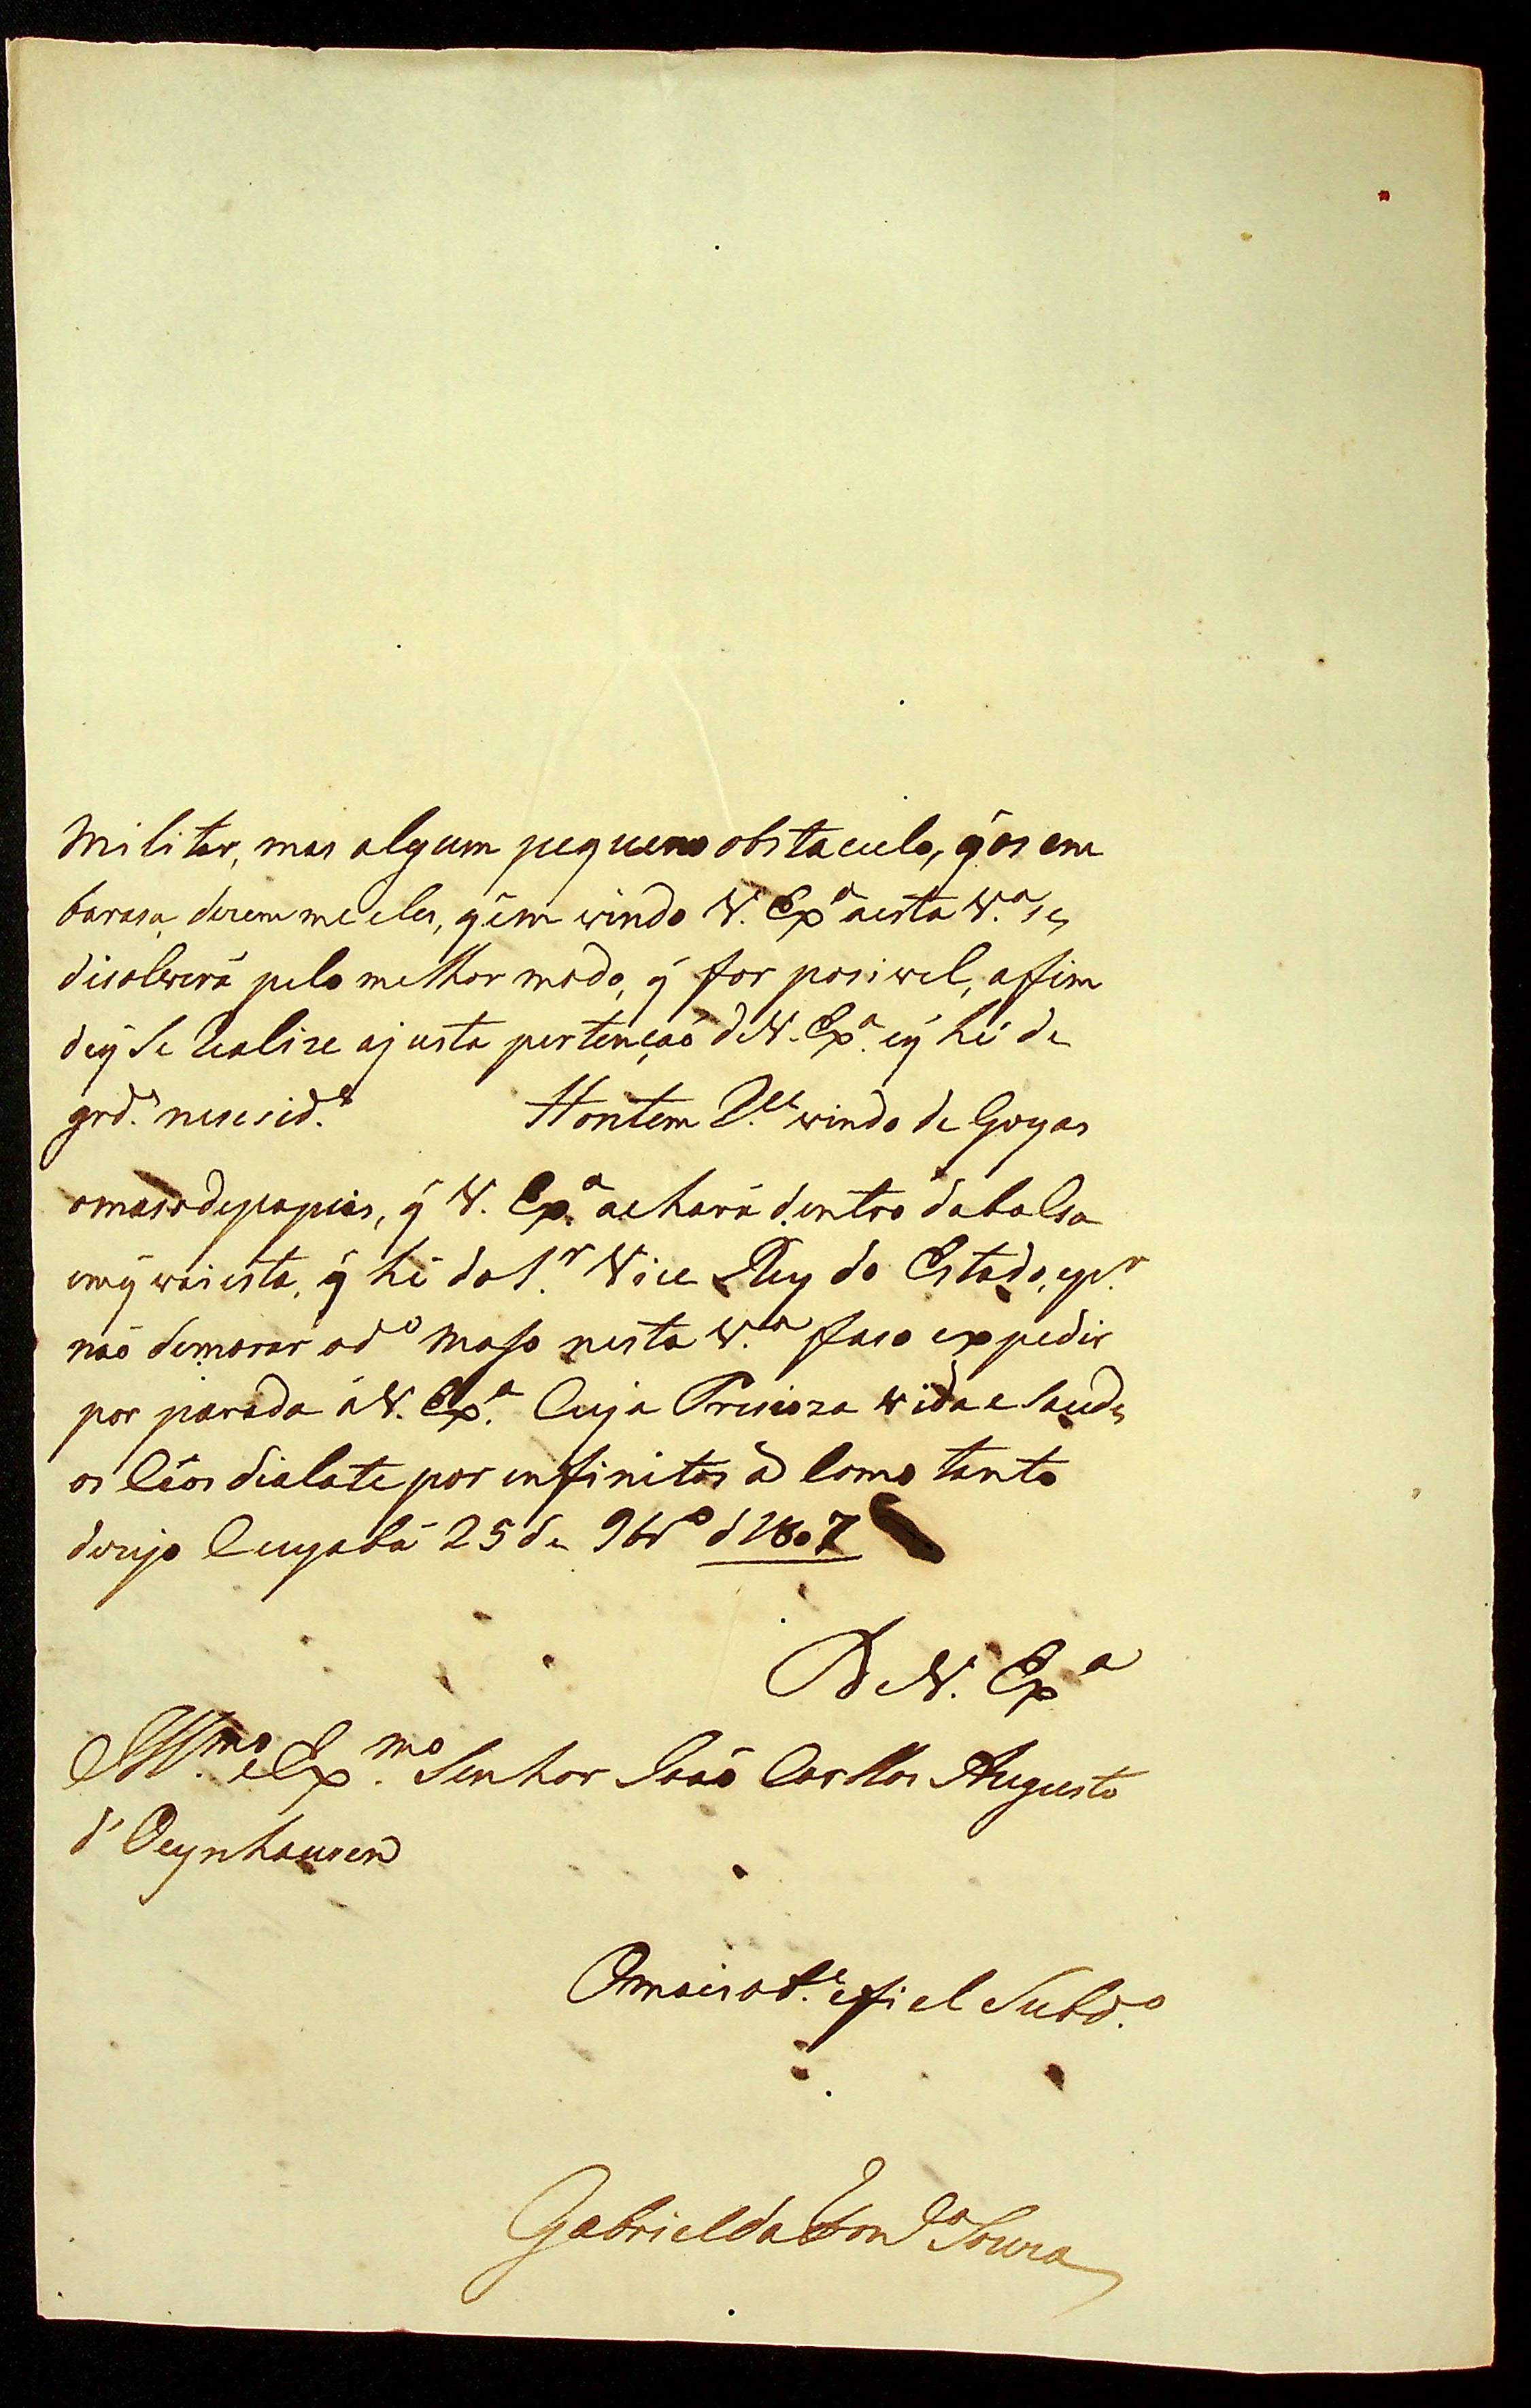 Militar, mas algum pequeno obstaculo, q̃ os em
barasa, dizem me eles, q̃ em vindo V. Exª aesta Vª se
disolverá pelo melhor modo, q̃ for posivel, affim
deq̃ se Realize ajusta pertenção deV. Exª. eq̃ hé de
grd.e nesesid.e Hontem R.el vindo de Goyas
omasodepapeis, q̃ V. Exª. achará dentro dabolsa
emq̃ vai esta, q̃ hé do S.r Vice Rey do Estado, ep.r
não demorar od.o Maso nesta V.a faso expedir
por parada áV. Exª. Cuja Presioza vida e Saude
os Céos dialate por infinitos ad Como tanto
dezejo Cuyabá 25 de 9br.o d 1807
DeV. Exª
Ill.mo e Ex.mo Senhor João Carllos Augusto
d'Oeynhausen
Omaisob.e efiel Subd.o
Gabriel da Fon.ca Souza